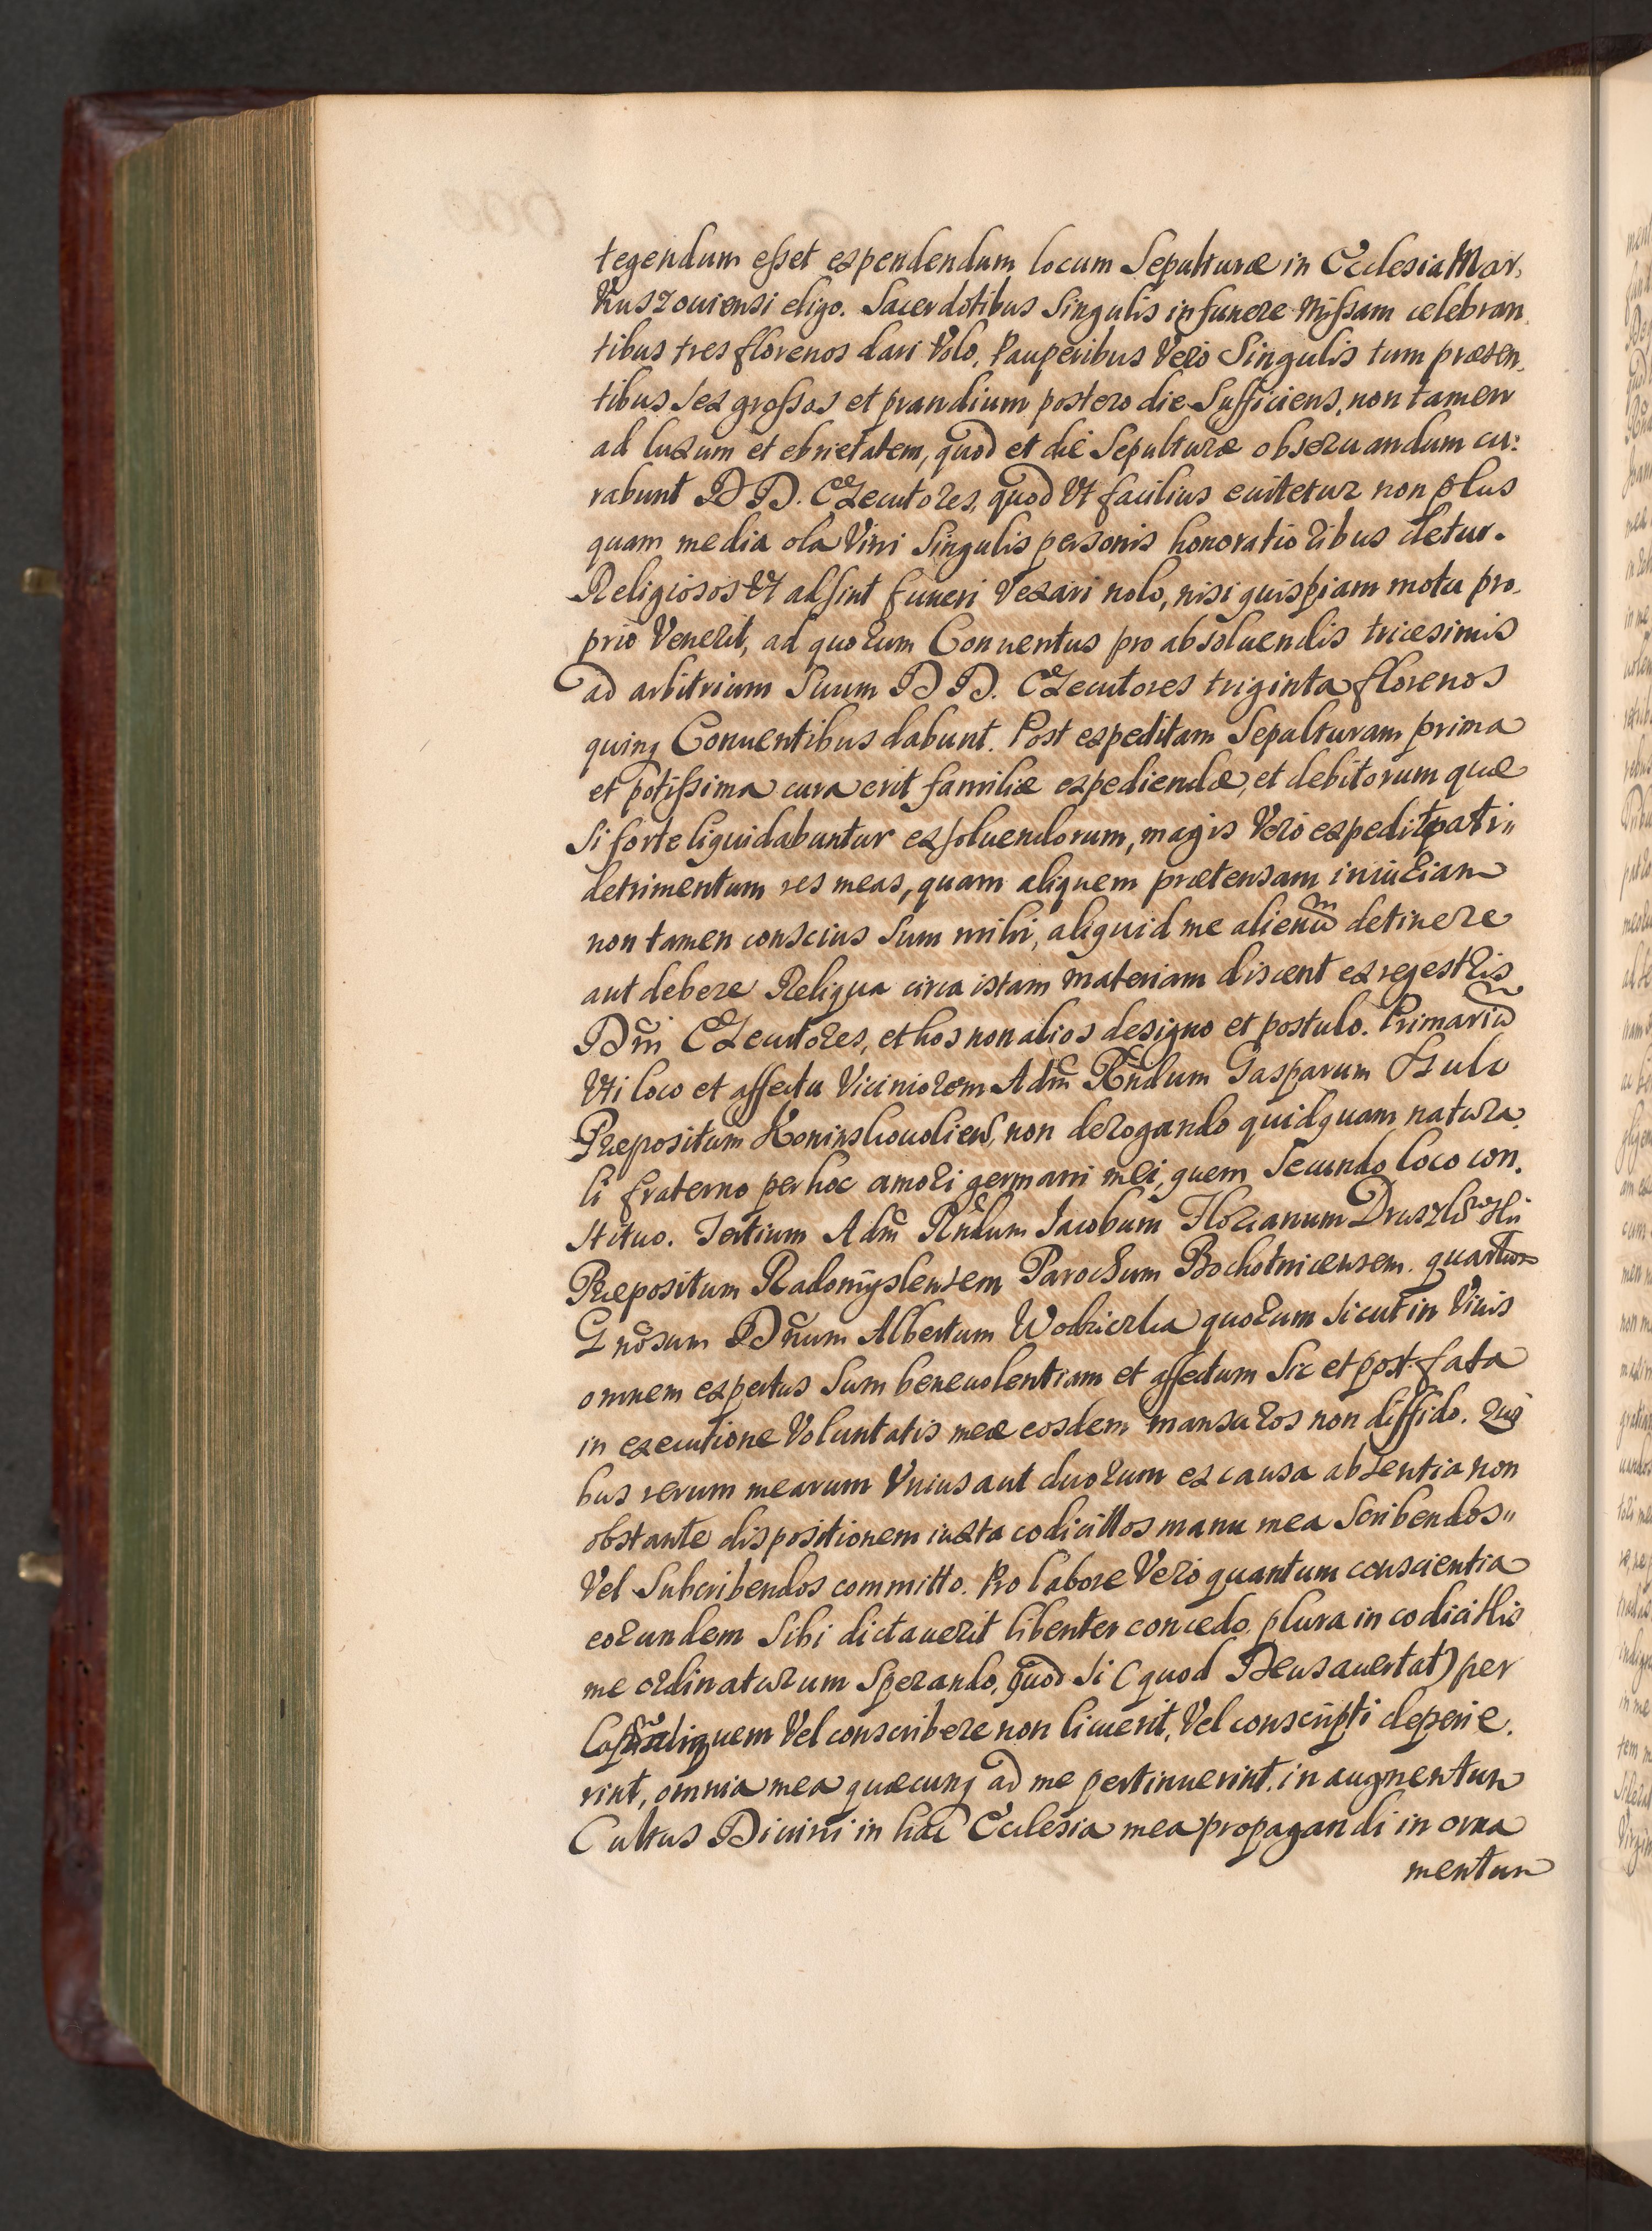 tegendum esset expendendum, locum Sepulturæ in Ecclesia Mar,
kuszouiensi eligo. Sacerdotibus Singulis in funere Missam celebran,
tibus tres florenos dari Volo, Pauperibus Vero Singulis tum præsen,
tibus Sex grossos et prandium postero die Sufficiens, non tamen
ad luxum et ebrietatem, quod et die Sepulturæ obseruandum cu:
rabunt D D. Executores, quod Vt facilius euitetur non plus
quam media ola Vini Singulis personis honoratioribus detur.
Religiosos Vt adsint funeri Vexari nolo, nisi quispiam motu pro,
prio Venerit, ad quorum Conuentus pro absoluendis tricesimis
ad arbitrium Suum D D. Executores triginta florenos
quinq Conuentibus dabunt. Post expeditam Sepulturam prima
et potissima cura erit familiæ expediendæ, et debitorum quæ
Si forte liquidabuntur exsoluendorum, magis Vero expedit pati"
detrimentum res meas, quam aliquem prætensam iniuriam
non tamen conscius Sum mihi, aliquid me alienũ detinere
aut debere Reliqua circa istam materiam discent ex regestris
Dñi Executores, et hos non alios designo et postulo. Primariũ
Vti loco et affectu Viciniorem Adm̃ Rñdum Gasparum
Præpositum non derogando quidquam natura,
li fraterno per hoc amori germani mei, quem Secundo loco con,
Stituo. Tertium Adm̃ Rñdum Jacobum Florianum
Præpositum Radomÿslensem Parochum Bochotnicensem. quartum
Gñosum Dñum Albertum quorum Sicut in Viuis
omnem expertus Sum beneuolentiam et affectum Sic et post fata
in executione Voluntatis meæ eosdem mansuros non diffido. Qui
bus rerum mearum Vnius aut duorum ex causa absentia non
obstante dispositionem iuxta codicillos manu mea Scribendos"
Vel Subcribendos committo. Pro labore Vero quantum conscientia
eorundem Sibi dictauerit libenter concedo. plura in codicillis
me ordinaturum Sperando, quod Si (quod Deus auertat) per
Casũ aliquem Vel conscribere non licuerit, Vel conscripti deperie,
rint, omnia mea quæcunq ad me pertinuerint, in augmentum
Cultus Diuini in hac Ecclesia mea propagandi in orna
mentum